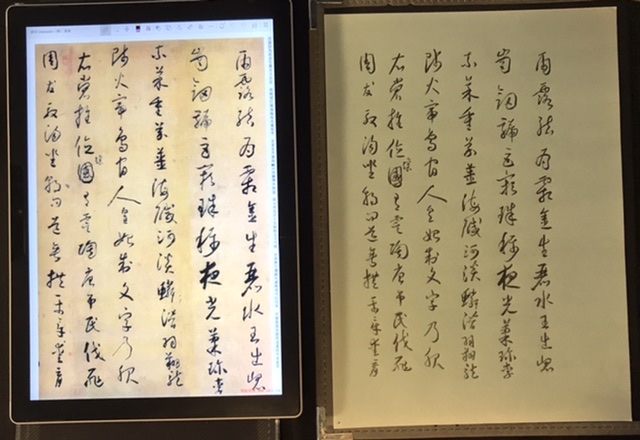 雨露結為霜金生麗水玉出崑
岡劍號巨闕珠稱夜光菓珎李
柰菜重芥薑海鹹河淡鱗潛羽翔龍
師火帝鳥官人皇始制文字乃服
衣裳推位讓國有虞陶唐弔民伐罪
周發殷湯坐朝問道垂拱平章愛育
雨露結為霜金生麗水玉出崑
岡劍號巨闕珠稱夜光菓珎李
柰菜重芥薑海鹹河淡鱗潛羽翔龍
師火帝鳥官人皇始制文字乃服
衣裳推位讓國有虞陶唐弔民伐罪
周發殷湯坐朝問道垂拱平章愛育